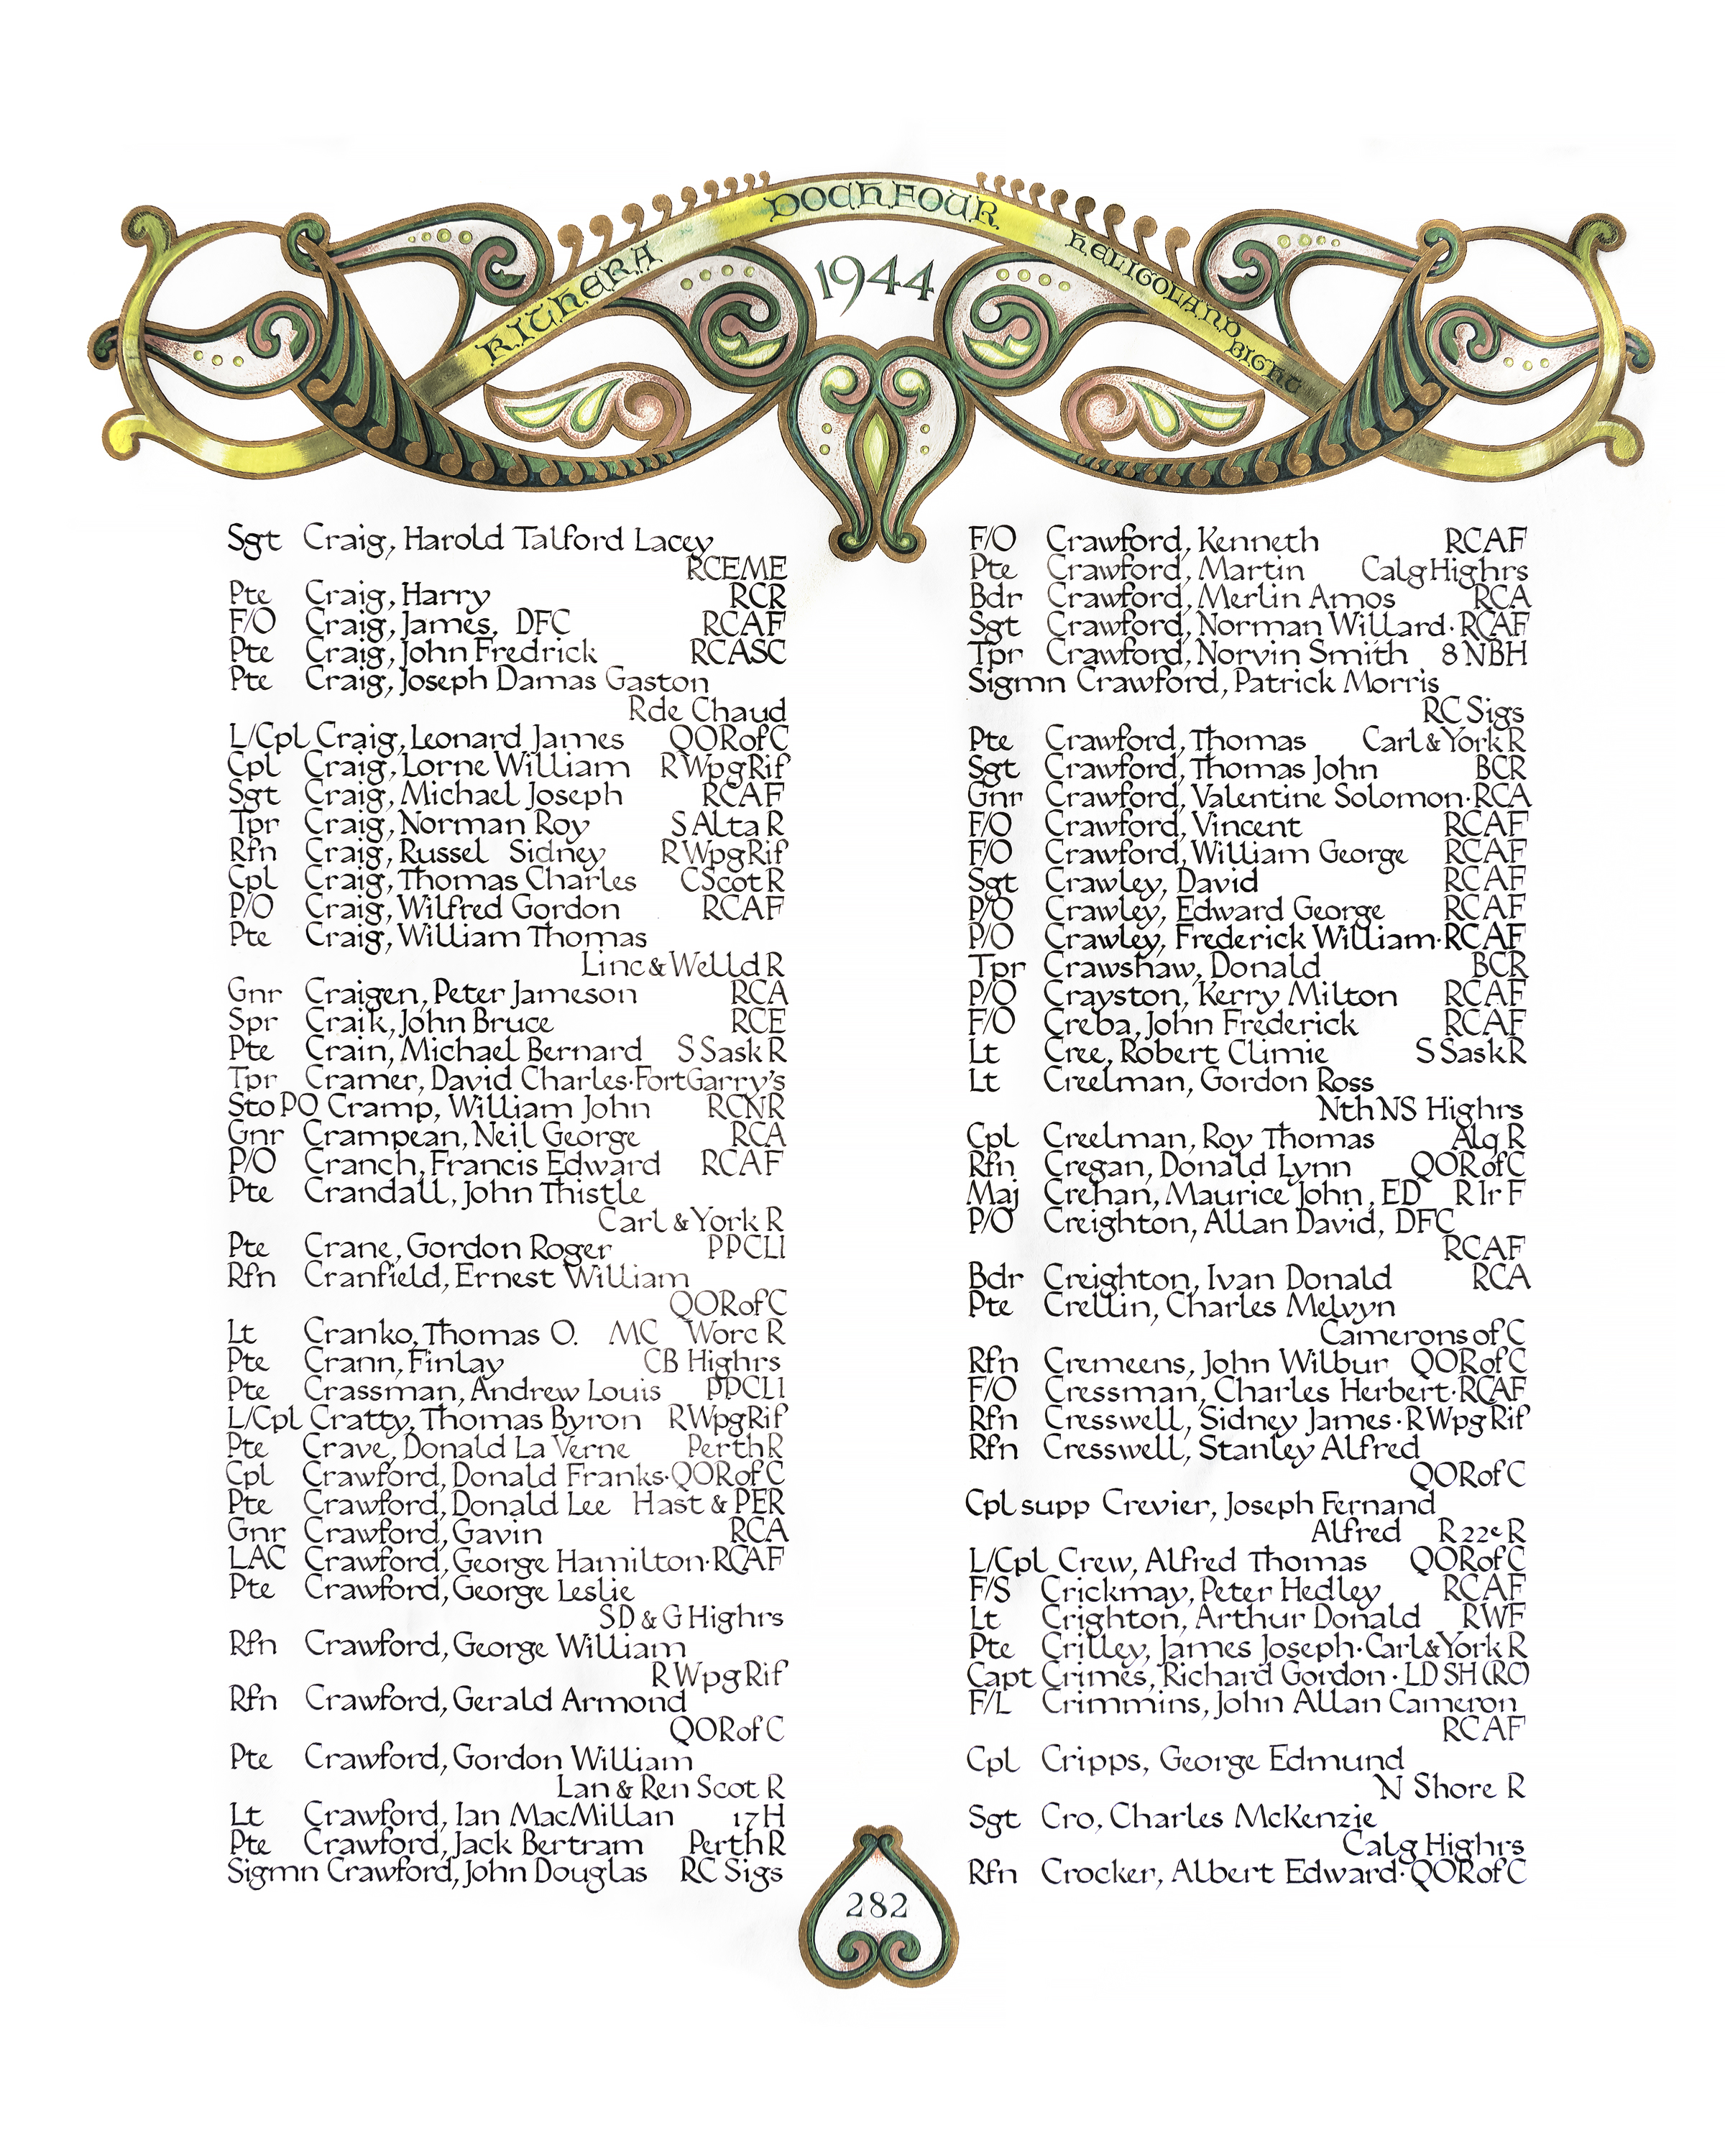 KITHERA DOCHFOUR HELIGOLAND BIGHT
1944
Sgt Craig, Harold Talford Lacey
RCEME
Pte Craig, Harry RCR
F/O Craig, James, DFC RCAF
Pte Craig, John Fredrick RCASC
Pte Craig, Joseph Damas Gaston
R de Chaud
L/Cpl Craig, Leonard James QOR of C
Cpl Craig, Lorne William R Wpg Rif
Sgt Craig, Michael Joseph RCAF
Tpr Craig, Norman Roy S Alta R
Rfn Craig, Russel Sidney R Wpg Rif
Cpl Craig, Thomas Charles C Scot R
P/O Craig, Wilfred Gordon RCAF
Pte Craig, William Thomas
Linc & Welld R
Gnr Craigen, Peter Jameson RCA
Spr Craik, John Bruce RCE
Pte Crain, Michael Bernard S Sask R
Tpr Cramer, David Charles·Fort Garry's
Sto PO Cramp, William John RCNR
Gnr Crampean, Neil George RCA
P/O Cranch, Francis Edward RCAF
Pte Crandall, John Thistle
Carl & York R
Pte Crane, Gordon Roger PPCLI
Rfn Cranfield, Ernest William
QOR of C
Lt Cranko, Thomas O. MC Worc R
Pte Crann, Finlay CB Highrs
Pte Crassman, Andrew Louis PPCLI
L/Cpl Cratty, Thomas Byron R Wpg Rif
Pte Crave, Donald La Verne Perth R
Cpl Crawford, Donald Franks·QOR of C
Pte Crawford, Donald Lee Hast & PER
Gnr Crawford, Gavin RCA
LAC Crawford, George Hamilton·RCAF
Pte Crawford, George Leslie
SD & G Highrs
Rfn Crawford, George William
R Wpg Rif
Rfn Crawford, Gerald Armond
QOR of C
Pte Crawford, Gordon William
Lan & Ren Scot R
Lt Crawford, Ian MacMillan 17 H
Pte Crawford, Jack Bertram Perth R
Sigmn Crawford, John Douglas RC Sigs
F/O Crawford, Kenneth RCAF
Pte Crawford, Martin Calg Highrs
Bdr Crawford, Merlin Amos RCA
Sgt Crawford, Norman Willard·RCAF
Tpr Crawford, Norvin Smith 8 NBH
Sigmn Crawford, Patrick Morris
RC Sigs
Pte Crawford, Thomas Carl & York R
Sgt Crawford, Thomas John BCR
Gnr Crawford, Valentine Solomon·RCA
F/O Crawford, Vincent RCAF
F/O Crawford, William George RCAF
Sgt Crawley, David RCAF
P/O Crawley, Edward George RCAF
P/O Crawley, Frederick William·RCAF
Tpr Crawshaw, Donald BCR
P/O Crayston, Kerry Milton RCAF
F/O Creba, John Frederick RCAF
Lt Cree, Robert Climie S Sask R
Lt Creelman, Gordon Ross
Nth NS Highrs
Cpl Creelman, Roy Thomas Alq R
Rfn Cregan, Donald Lynn QOR of C
Maj Crehan, Maurice John, ED R Ir F
P/O Creighton, Allan David, DFC
RCAF
Bdr Creighton, Ivan Donald RCA
Pte Crellin, Charles Melvyn
Camerons of C
Rfn Cremeens, John Wilbur QOR of C
F/O Cressman, Charles Herbert·RCAF
Rfn Cresswell, Sidney James·R Wpg Rif
Rfn Cresswell, Stanley Alfred
QOR of C
Cpl supp Crevier, Joseph Fernand
Alfred R 22e R
L/Cpl Crew, Alfred Thomas QOR of C
F/S Crickmay, Peter Hedley RCAF
Lt Crighton, Arthur Donald RWF
Pte Crilley, James Joseph·Carl & York R
Capt Crimes, Richard Gordon·LD SH (RC)
F/L Crimmins, John Allan Cameron
RCAF
Cpl Cripps, George Edmund
N Shore R
Sgt Cro, Charles McKenzie
Calg Highrs
Rfn Crocker, Albert Edward·QOR of C
282